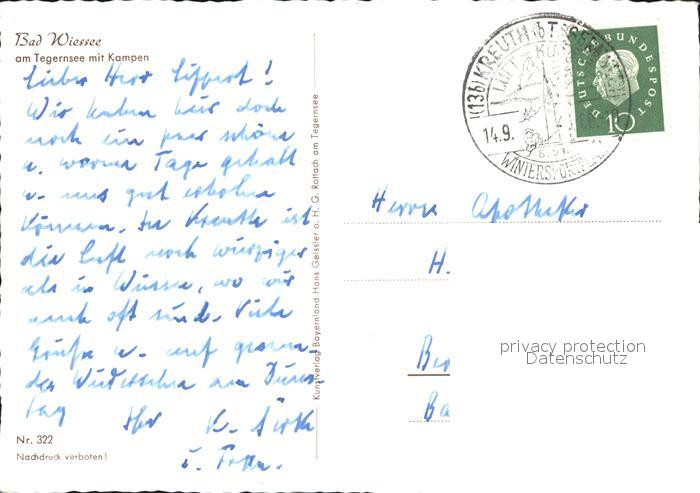 Bad Wiessee
am Tegernsee mit Kampen
Lieber Herr Lippert!
Wir haben hier doch
noch ein paar schöne
u. warme Tage gehabt
u. uns gut erholen
können. In Kreuth ist
die Luft noch würziger
als in Wiessee, wo wir
auch oft sind. Viele
Grüße u. auf gesun-
des Wiedersehen am Diens-
tag
Ihr K.
u. Frau.
Nr. 322
Nachdruck verboten!
Kunstverlag Bayernland Hans Geissler o. H. G. Rottach am Tegernsee
(13b) KREUTH b. T
LUFT KU
14.9.
WINTERSPORTPL
DEUTSCHE BUNDESPOST
10
Herrn Apotheker
H.
Ba
privacy protection
Datenschutz